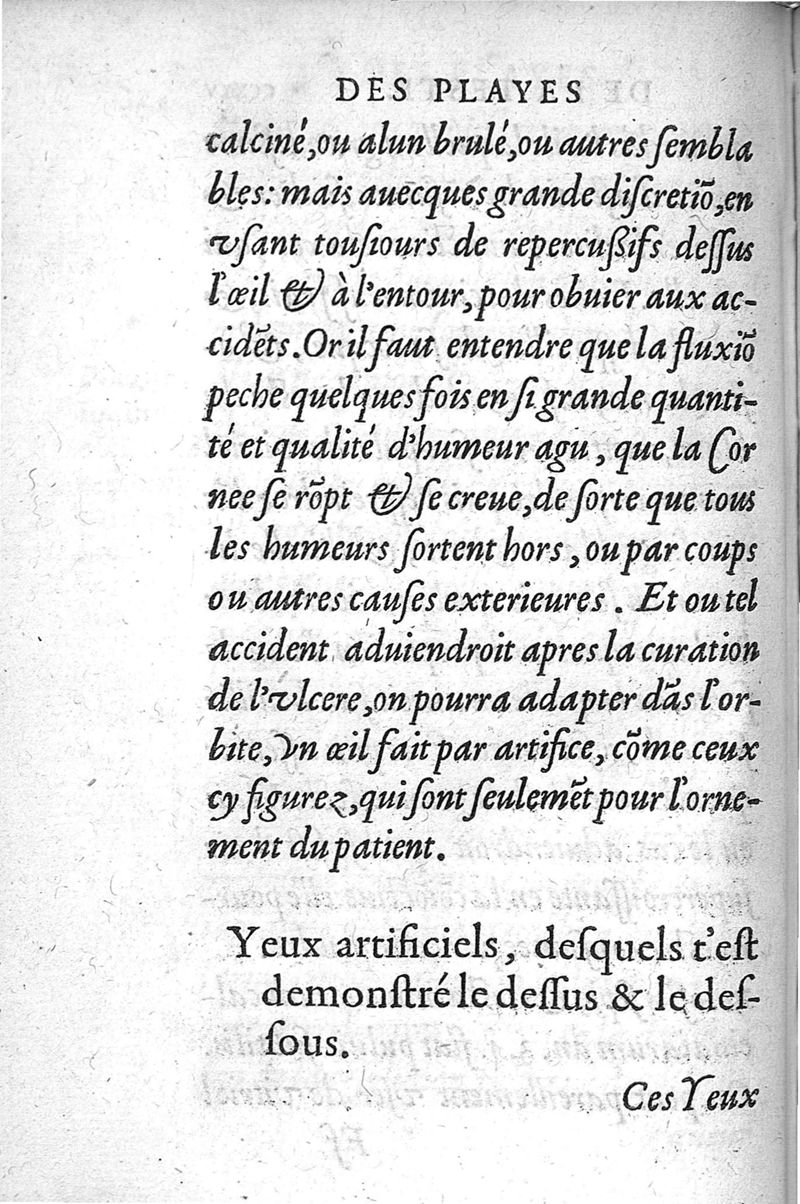 DES PLAYES
calciné,ou alun brulé,ou autres ſembla
bles: mais auecques grande diſcretiõ,en
vſant touſiours de repercußifs deſſus
l'œil & à l'entour, pour obuier aux ac-
cidẽts. Or il faut entendre que la fluxiõ
peche quelques fois en ſi grande quanti-
té et qualité d'humeur agu, que la Cor
nee ſe rõpt & ſe creue, de ſorte que tous
les humeurs ſortent hors, ou par coups
ou autres cauſes exterieures. Et ou tel
accident aduiendroit apres la curation
de l'vlcere,on pourra adapter dãs l'or-
bite, Vn œil fait par artifice, cõme ceux
cy figurez,qui ſont ſeulemẽt pour l'orne-
ment du patient.
Yeux artificiels, deſquels t'eſt
demonſtré le deſſus & le deſ-
ſous.
Ces Yeux